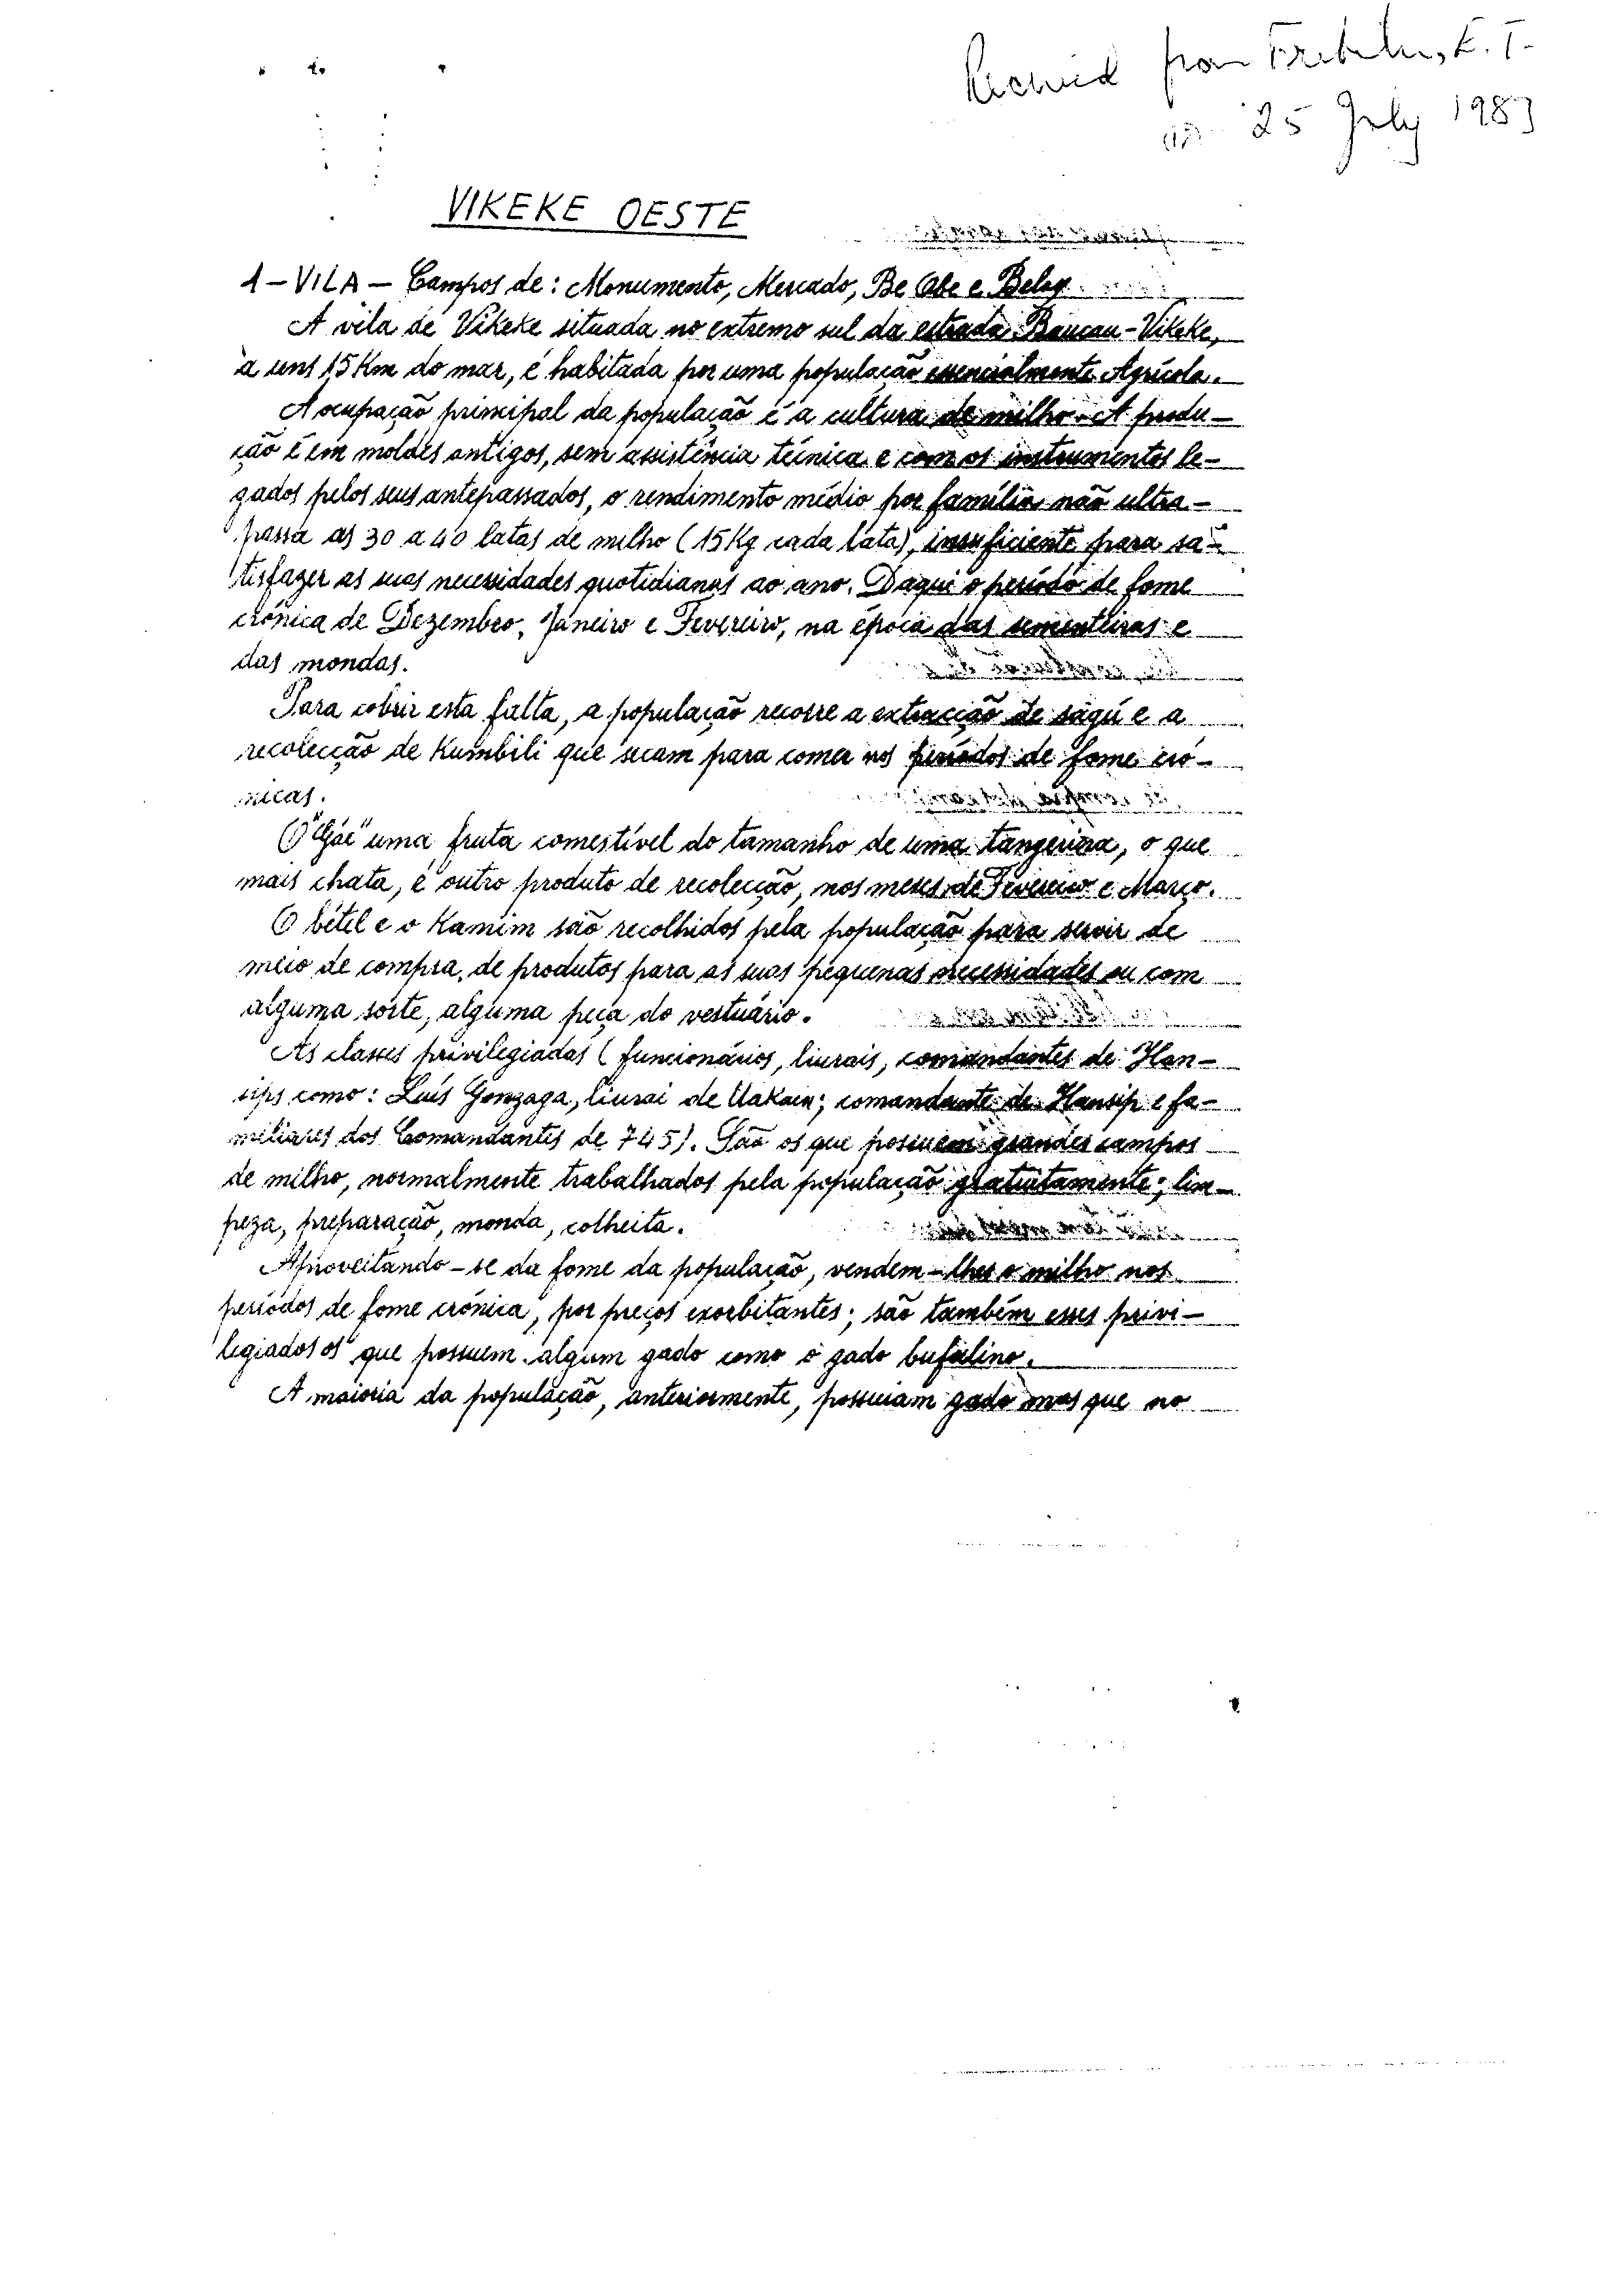 Received from Fretilin, E.T.
on 25 July 1983
VIKEKE OESTE
1 - VILA - Campos de: Monumento, Mercado, Be Obe e Beloy
A vila de Vikeke situada no extremo sul da estrada Baucau-Vikeke,
a uns 15 Km do mar, é habitada por uma população essencialmente Agrícola.
A ocupação principal da população é a cultura de milho. A produ-
ção é em moldes antigos, sem assistência técnica e com os instrumentos le-
gados pelos seus antepassados, o rendimento médio por família não ultra-
passa as 30 a 40 latas de milho (15 Kg cada lata), insuficiente para sa-
tisfazer as suas necessidades quotidianas ao ano. Daqui o período de fome
crónica de Dezembro, Janeiro e Fevereiro, na época das sementeiras e
das mondas.
Para cobrir esta falta, a população recorre a extracção de sagú e a
recolecção de Kumbili que secam para comer nos períodos de fome cró-
nicas.
O "Gáe" uma fruta comestível do tamanho de uma tangerina, o que
mais chata, é outro produto de recolecção, nos meses de Fevereiro e Março.
O bétel e o Kamim são recolhidos pela população para servir de
meio de compra, de produtos para as suas pequenas necessidades ou com
alguma sorte, alguma peça do vestuário.
As classes privilegiadas (funcionários, liurais, comandantes de Han-
sips como: Luís Gonzaga, liurai de Uakaen; comandante de Hansip e fa-
miliares dos Comandantes de 745). São os que possuem grandes campos
de milho, normalmente trabalhados pela população gratuitamente; lim-
peza, preparação, monda, colheita.
Aproveitando-se da fome da população, vendem-lhes o milho nos
períodos de fome crónica, por preços exorbitantes; são também esses privi-
legiados os que possuem algum gado como o gado bufalino.
A maioria da população, anteriormente, possuiam gado mas que no